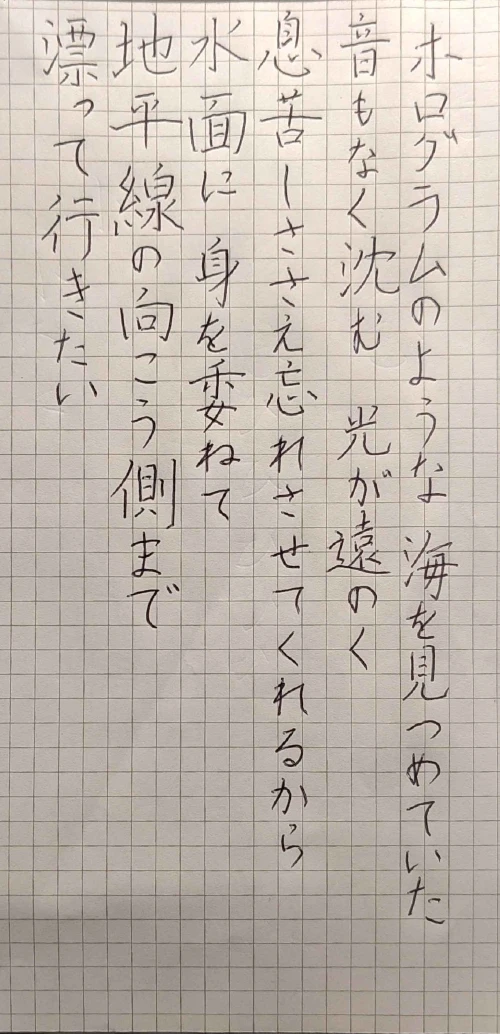 ホログラムのような 海を見つめていた
音もなく沈む 光が遠のく
息苦しささえ忘れさせてくれるから
水面に 身を委ねて
地平線の向こう側まで
漂って行きたい